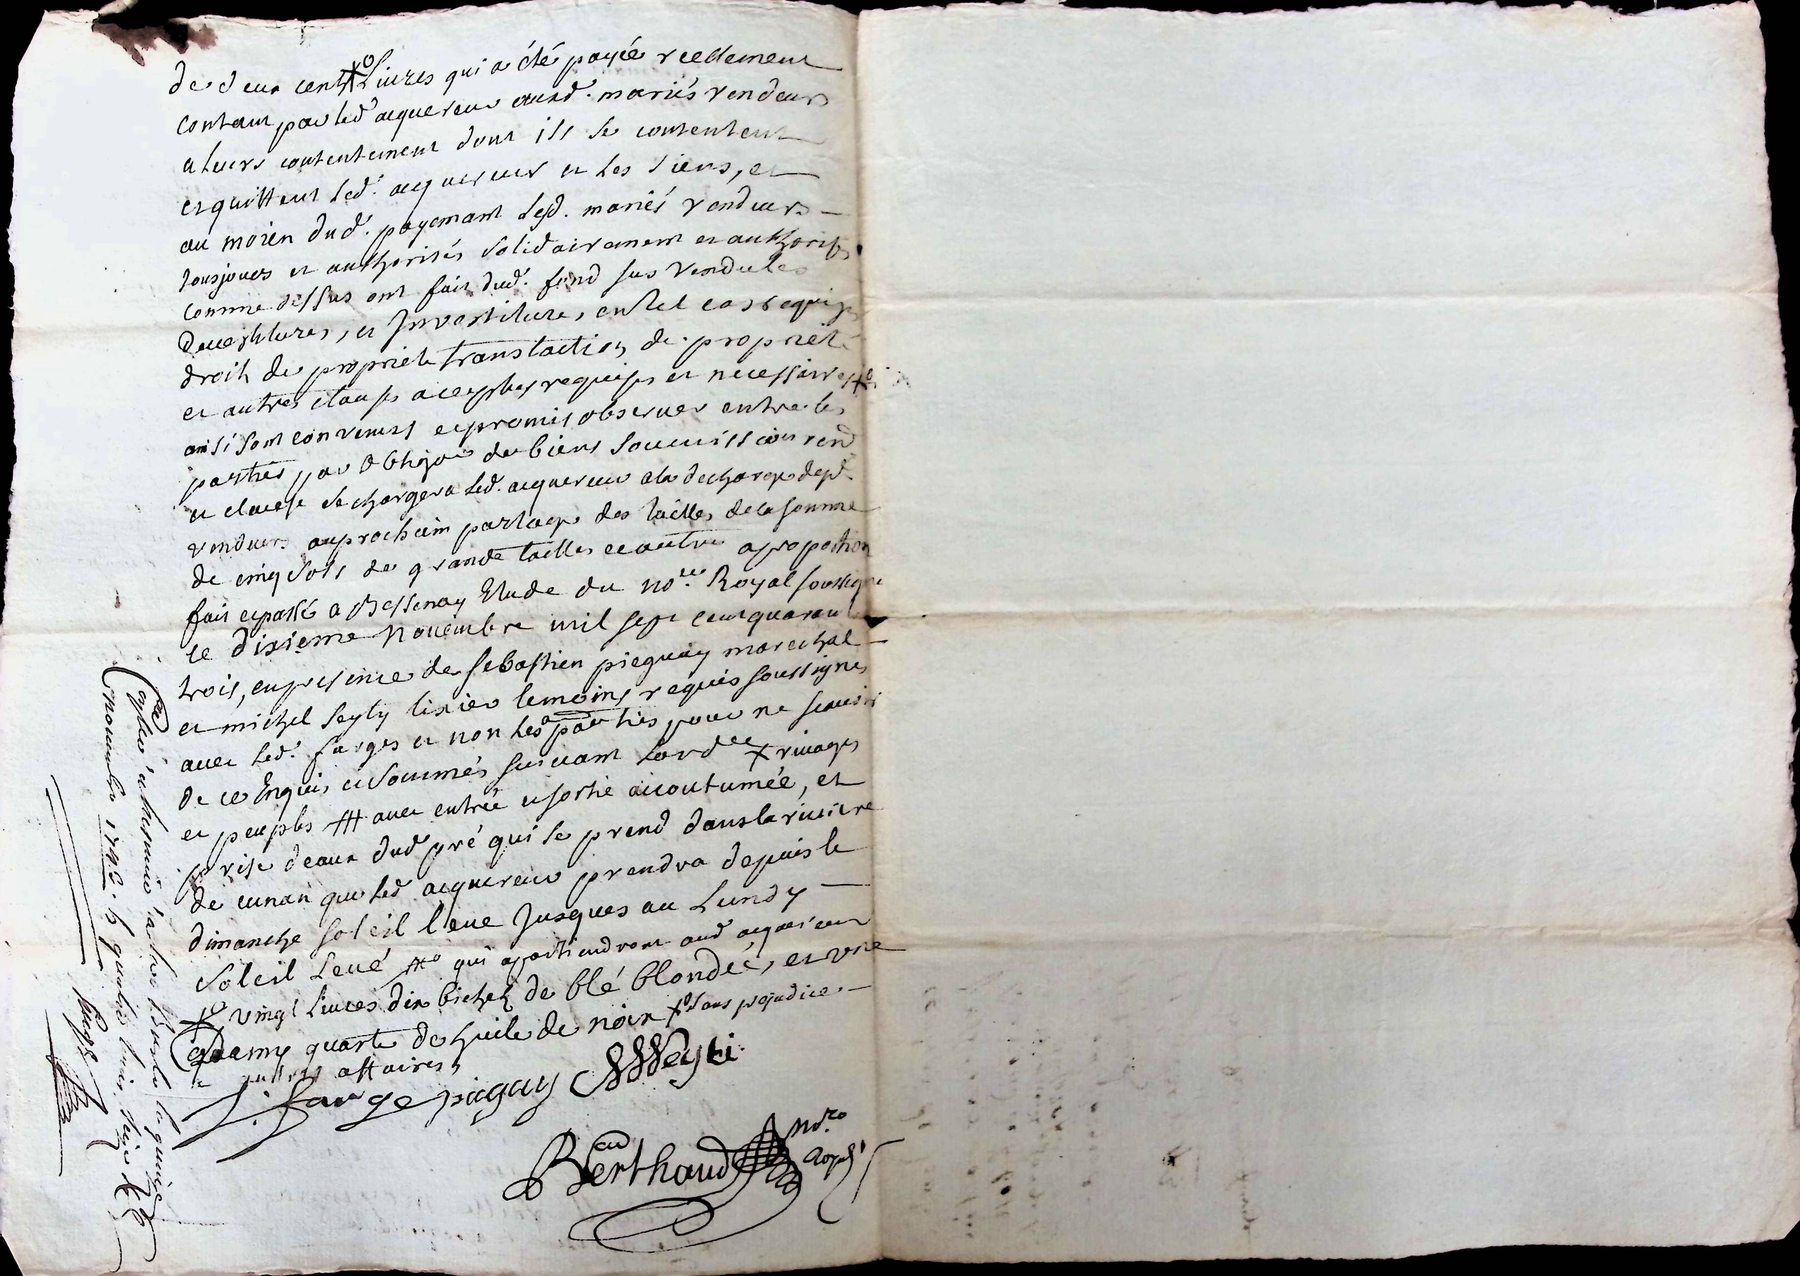 de deux cent x° Livres qui a été payée reellement
contant par led. acquereur auxd. mariés vendeurs
a leurs contentement dont ils se contentent
et quittent led. acquereur et les siens, et
au moien dud. payemant lesd. mariés vendeurs
tousjours et authorisés solidairement et authorisés
comme dessus ont fait dud. fond sus vendu les
Devestitures, et Investitures, en tel cas requises
droit de proprieté translaction de proprieté
et autres clauses acceptés requises et necessaires x°
ainsi sont convenues et promis observer entre les
parties par obligaon de biens soumissions renõn
et clause se chargera led. acquereur a la decharge desd.
vendeurs au prochain partage des tailles de la somme
de cinq sols de grande tailles et autres a proportion
fait et passé a Bessenay Etude du no.re Royal soussigné
le dixieme novembre mil sept cent quarante
trois, en presence de sebastien picquay marechal
et michel seyty tixier temoins requis soussignés
avec led. farges et non les parties pour ne scavoir
de ce Enquis et sommés suivant lord.ce x rivages
et peuples ## avec entrée et sortie accoutumée, et
prise deaux dud. pré qui se prend dans la riviere
de cunan que led. acquereur prendra depuis le
dimanche soleil leve Jusques au Lundy
soleil Levé ##° qui apartiendront aud. acquereur
x° vingt Livres dix bichet de blé blondée, et une
demy quarte de huile de noix x° sans prejudice
autres affaires
farge picquay MSeyti
Berthaud no.re Royal
novembre 174